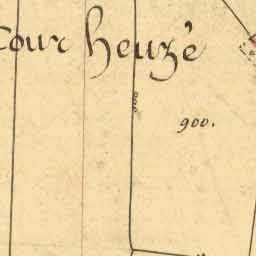 Cour heuzé
900.